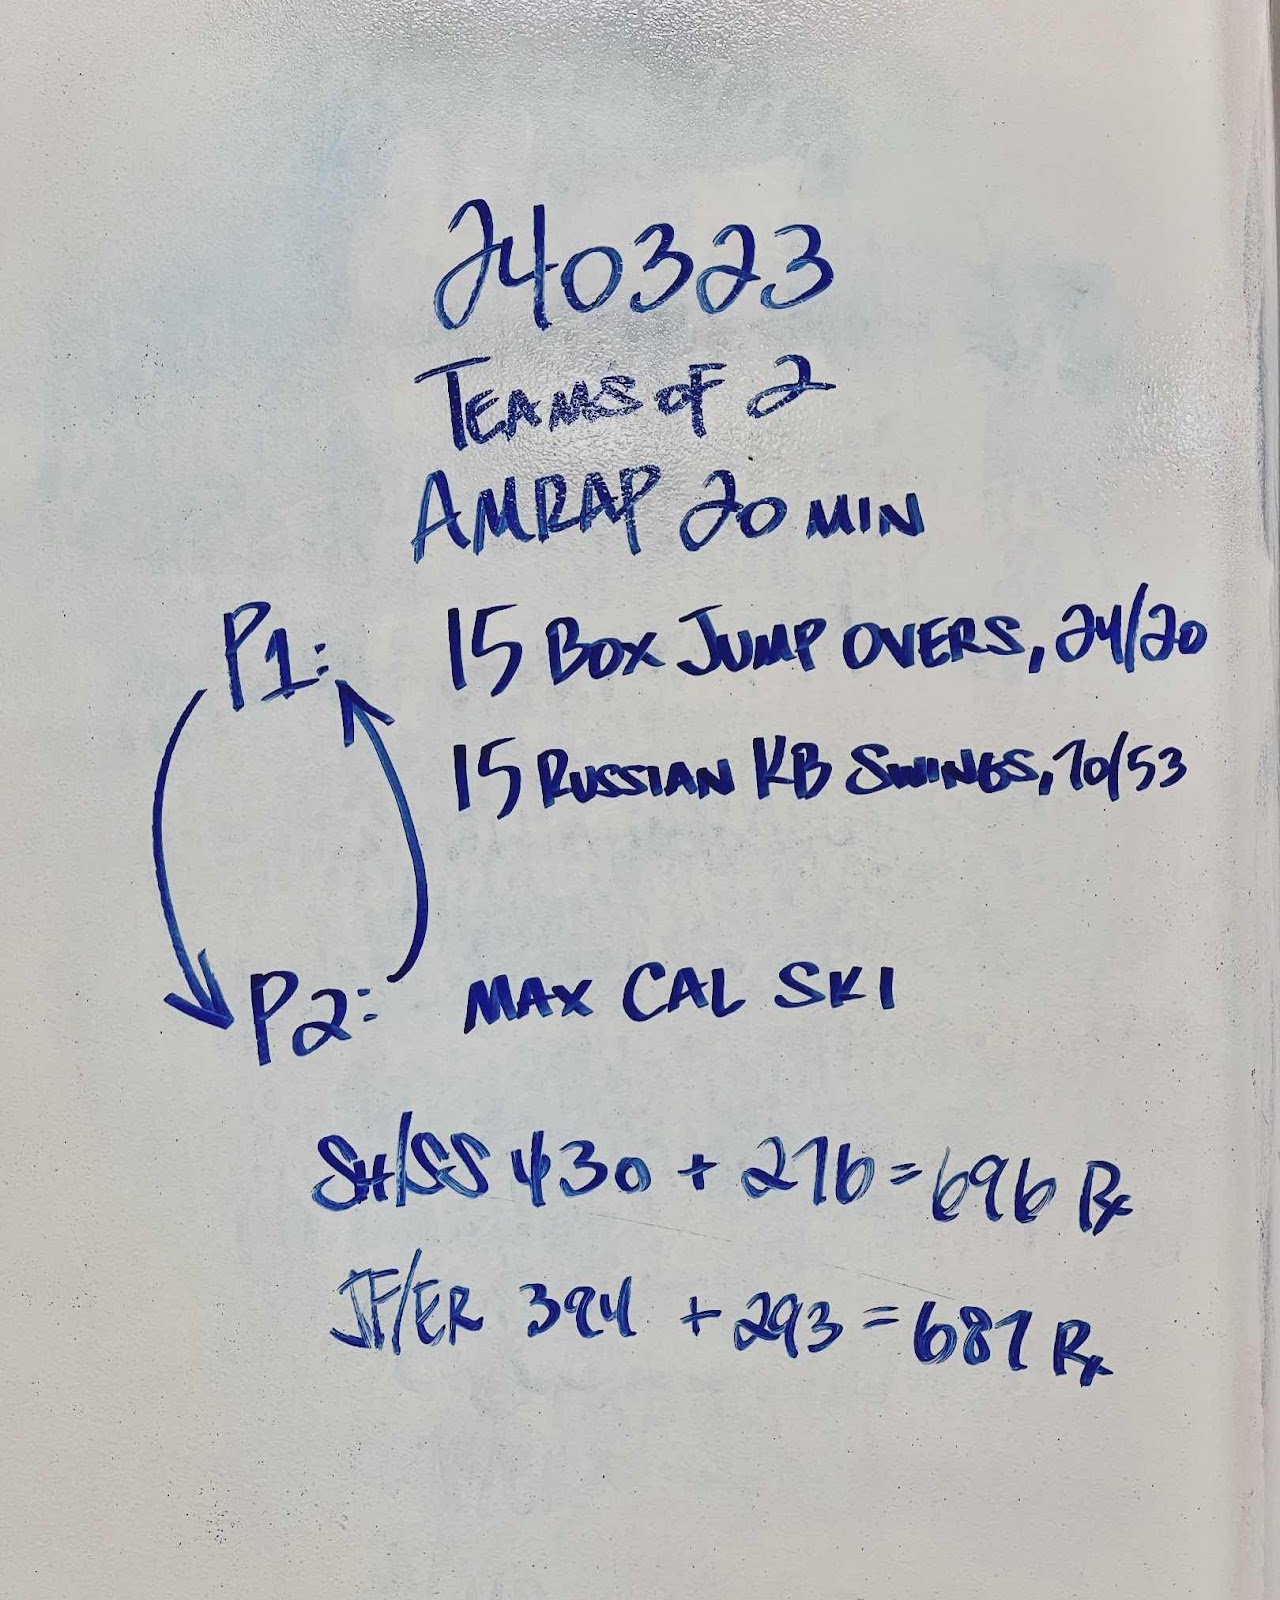 240323
TEAMS OF 2
AMRAP 20 MIN
P1: 15 BOX JUMP OVERS, 24/20
15 RUSSIAN KB SWINGS, 70/53
P2: MAX CAL SKI
SH/SS 430 + 276 = 696 Rx
JF/ER 394 + 293 = 687 Rx